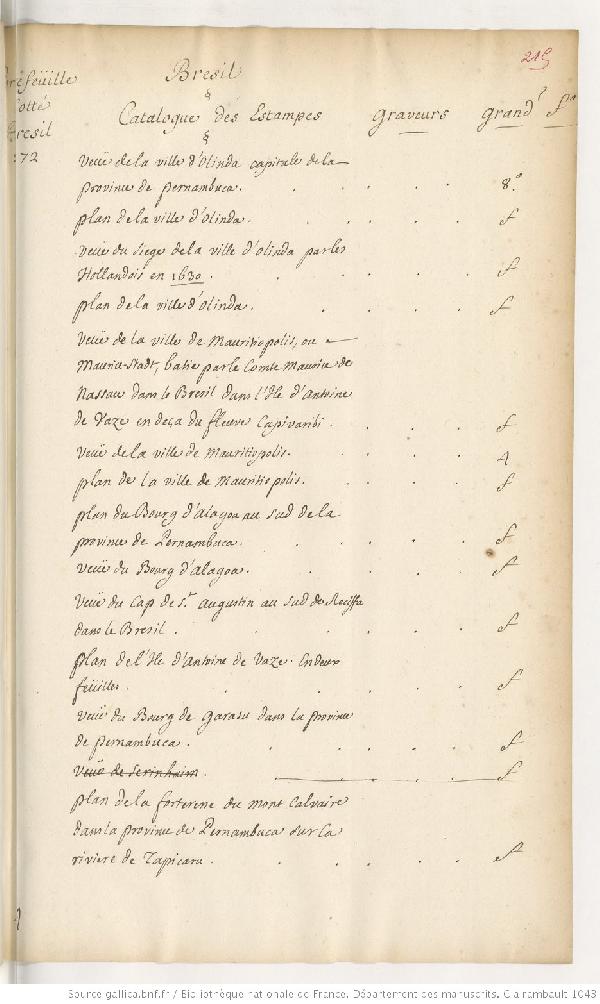 Bresil
Catalogue des Estampes graveurs grand.r f.o
Bresil
172
Veüe de la ville d'Olinda capitale de la
province de pernambuca. 8.o
plan de la ville d'Olinda. f
veüe du siege de la ville d'olinda par les
Hollandois en 1630. f
plan de la ville d'Olinda. f
Veüe de la ville de Mauritiopolis, ou
Mauria-Stadt, batie par le Comte Maurice de
Nassau dans le Bresil dans l'Isle d'Antoine
de Vaze en deça du fleuve Capivaribi. f
Veüe de la ville de Mauritiopolis. 4
plan de la ville de Mauritiopolis. f
plan du Bourg d'alagoa au sud de la
province de Pernambuca. f
veüe du Bourg d'Alagoa. f
Veüe du Cap de S.t augustin au sud de Reciffa
dans le Bresil. f
plan de l'Isle d'Antoine de Vaze. En deux
feüilles. f
veüe du Bourg de Garasu dans la province
de pernambuca. f
Veüe de Serinhaim. f
plan de la forteresse du mont Calvaire
dans la province de Pernambuca sur la
riviere de Tapicaru. f
Source gallica.bnf.fr / Bibliothèque nationale de France. Département des manuscrits. Clairambault 1043